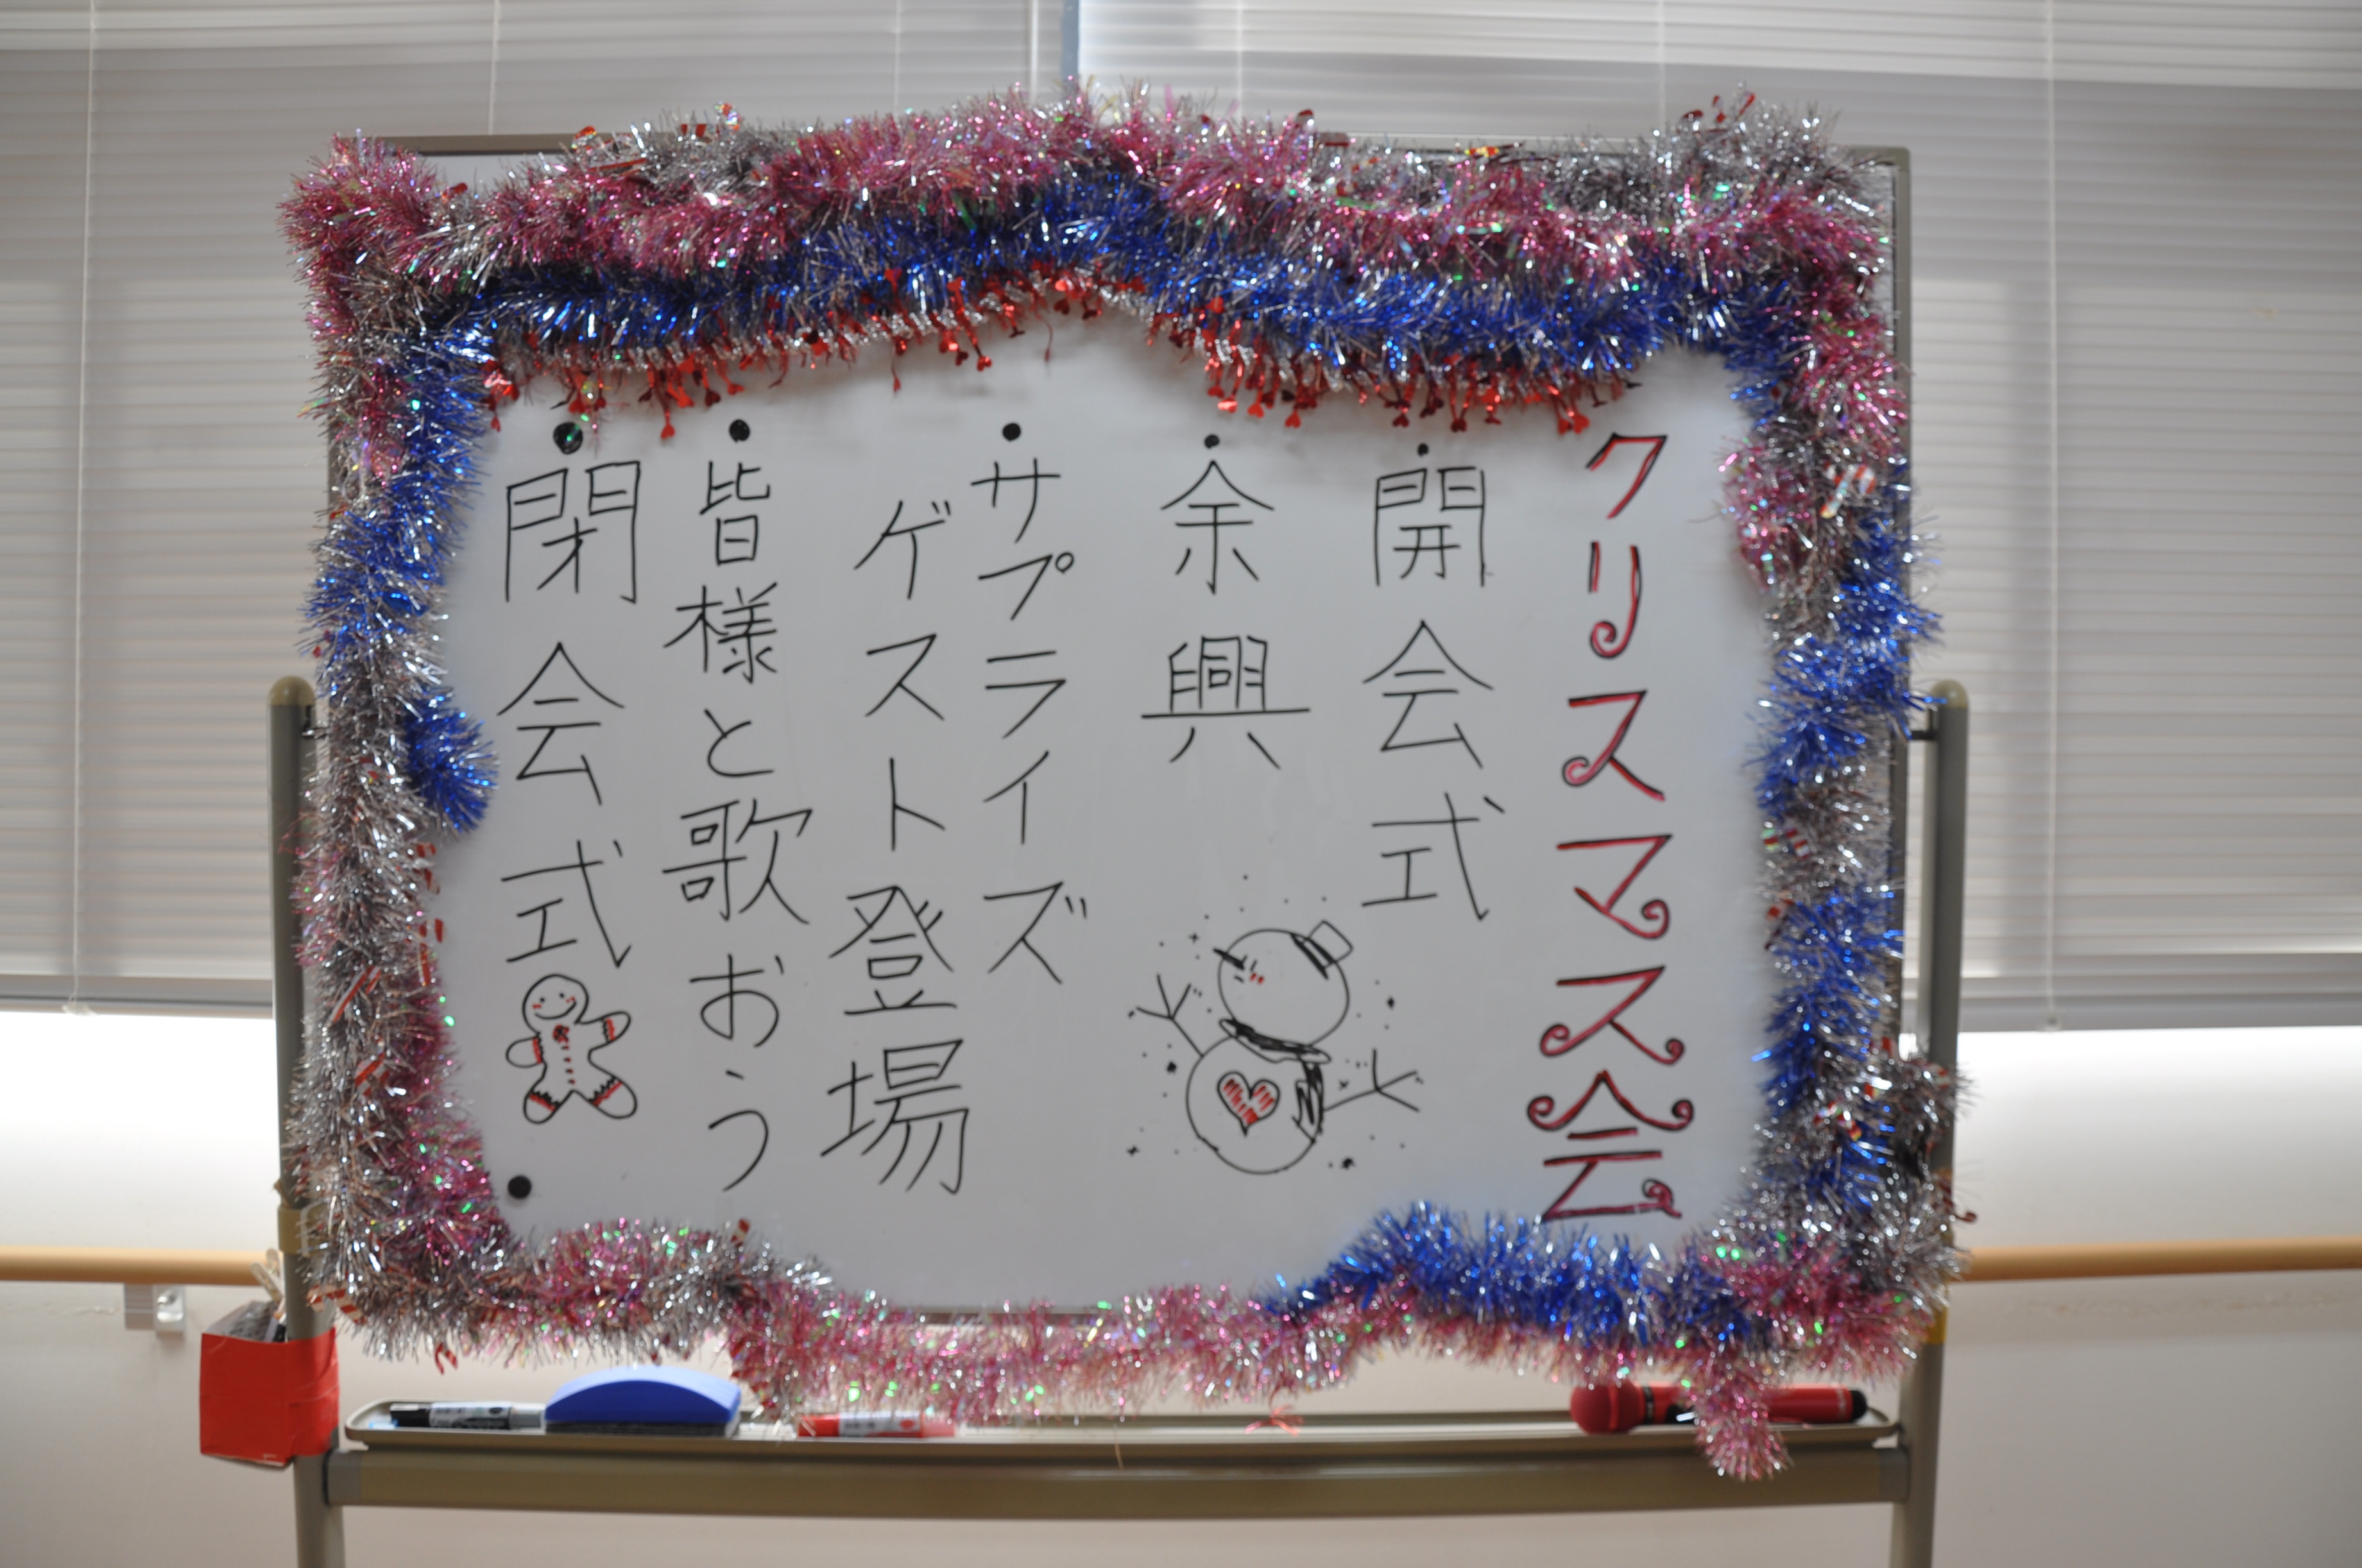 クリスマス会
・開会式
・余興
・サプライズ
ゲスト登場
・皆様と歌おう
・閉会式